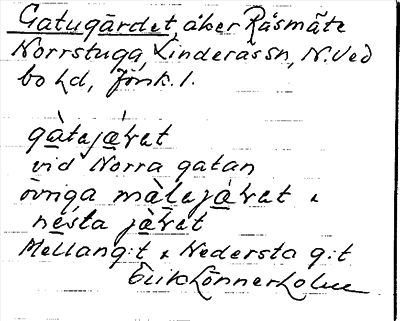 Gatugärdet, åker Råsmäte
Norrstuga, Linderås sn, N. Ved
bo hd, Jönk. l.
gàtajàʀat
vid Norra gatan
övriga màlajàʀat &
nésta jàʀat
Mellang:t & Nedersta g:t
Erik Lönnerholm